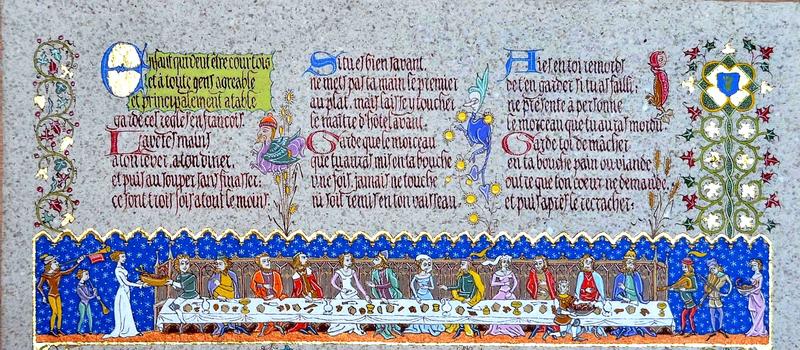 Enfant qui veut être courtois
et à toute gens agreable
et principalement a table
garde ces règles en francois
Lave tes mains
a ton lever, a ton diner,
et puis au souper sans finasser:
ce sont trois fois a tout le moins.
Si tu es bien savant,
ne mets pas ta main le premier
au plat, mais laisse y toucher
le maître d'hôtel avant.
Garde que le morceau
que tu auras mis en ta bouche
une fois, jamais ne touche
ni soit remis en ton vaisseau.
Aies en toi remords
de t'en garder si tu as failli:
ne présente à personne
le morceau que tu auras mordu
Garde toi de macher
en ta bouche pain ou viande
outre que ton coeur ne demande,
et puis après le recracher: